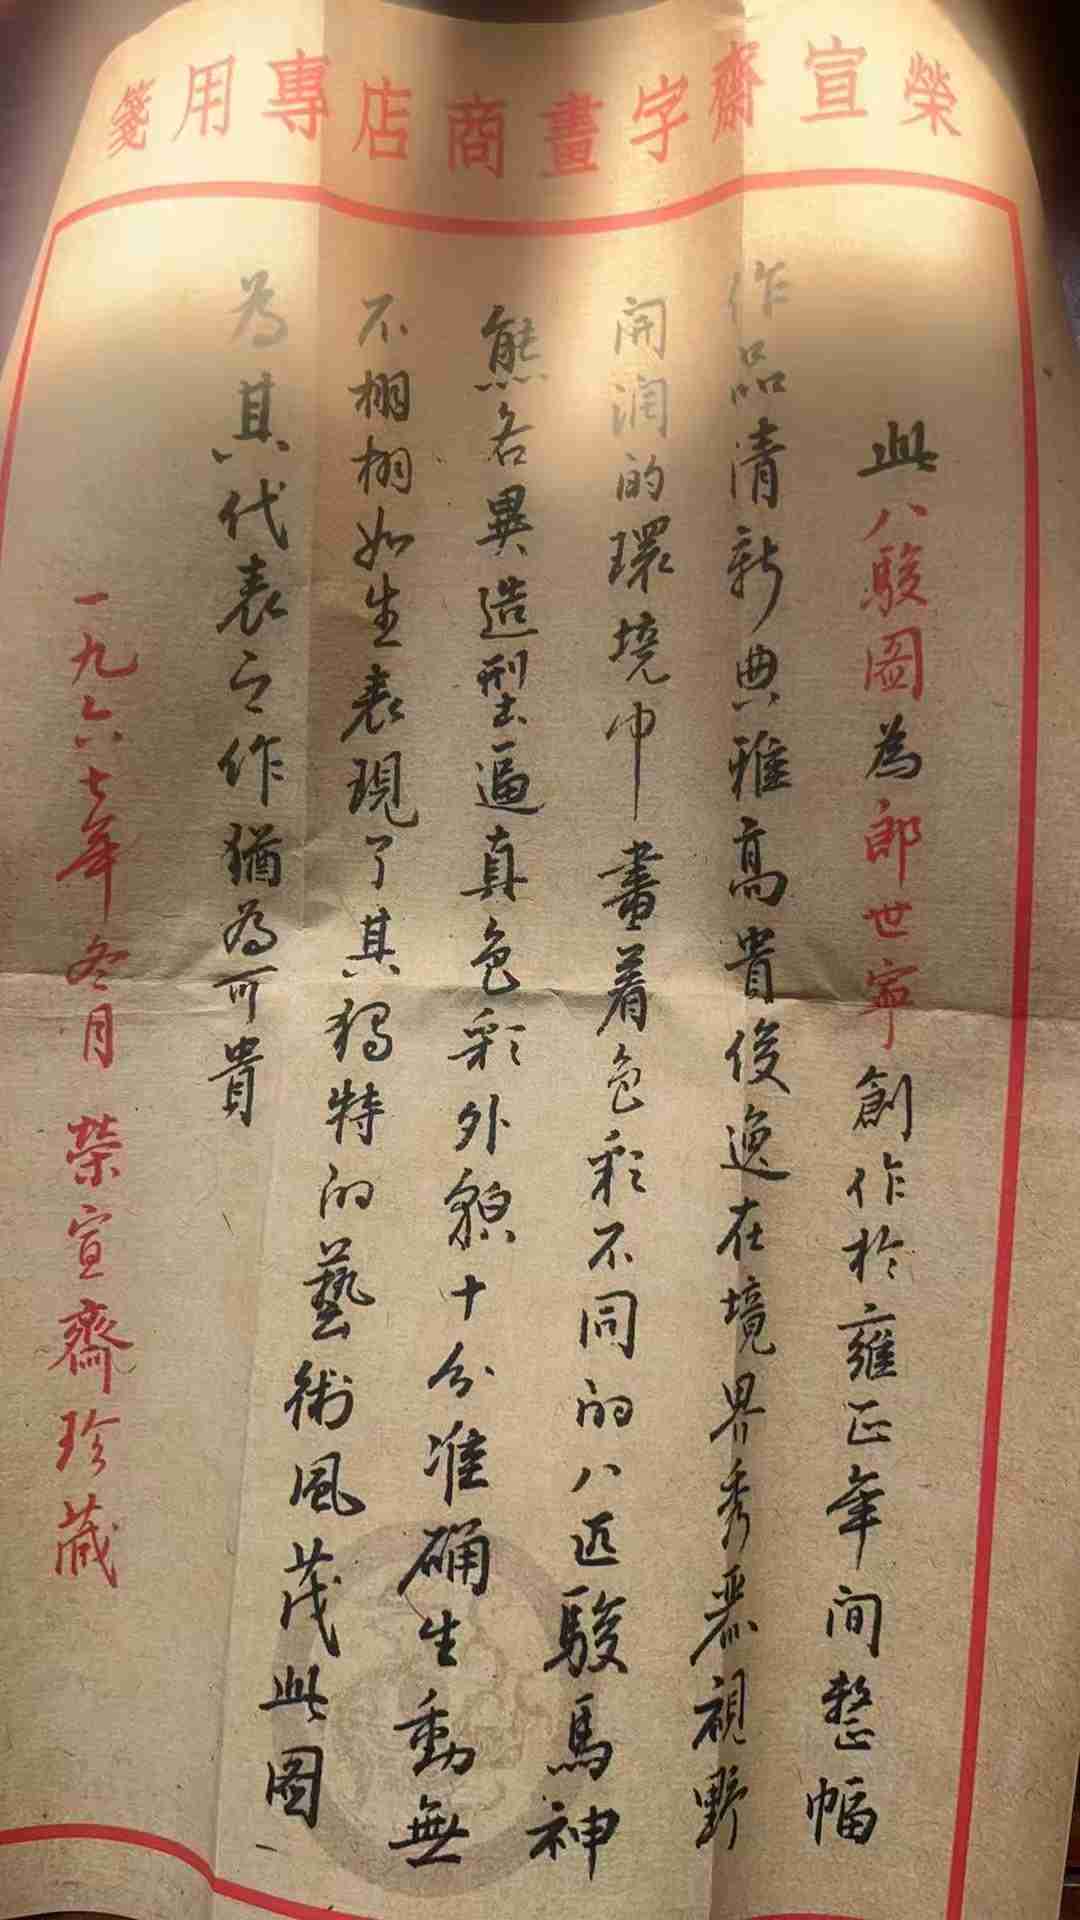 榮宣齋字畫商店專用箋
此八駿圖為郎世寧創作於雍正年間整幅
作品清新典雅高貴俊逸在境界秀麗視野
開润的環境中畫着色彩不同的八匹駿馬神
熊各異造型逼真色彩外貌十分准确生動無
不栩栩如生表現了其獨特的藝術風茂此圖
為其代表之作猶為可貴
一九六七年冬月榮宣齋珍藏